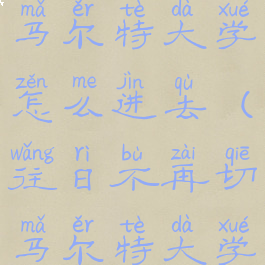 mǎ ěr tè dà xué
马尔特大学
zěn me jìn qù
怎么进去(
wǎng rì bù zài qiē
往日不再切
mǎ ěr tè dà xué
马尔特大学